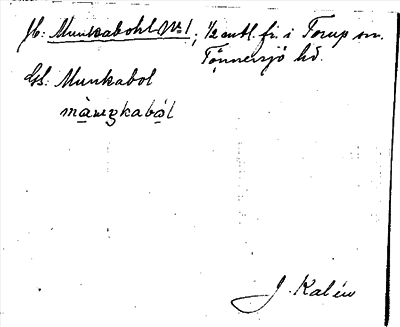 Jb: Munkabohl No 1; 1/2 mtl. fr. i Torup sn.
Tönnersjö hd.
Gs. Munkabol
J. Kalén